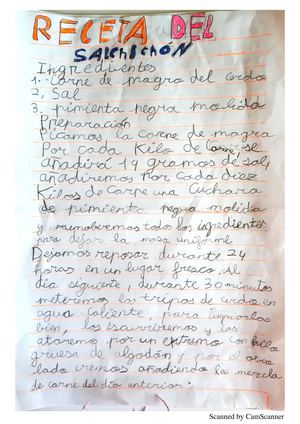 RECETA DEL
SALCHICHÓN
Ingredientes
1. Carne de magra del cerdo
2. Sal
3. pimienta negra molida
Preparación
Picamos la carne de magra
Por cada Kilo de carne se
añadirá 19 gramos de sal,
añadiremos Por cada diez
Kilos de carne una cuchara
de pimienta negra molida
y removeremos todo los ingredientes
para dejar la masa uniforme
Dejamos reposar durante 24
horas en un lugar fresco. Al
día siguiente, durante 30 minutos
meteremos las tripas de cerdo en
agua caliente, para limpiarlas
bien, las escurriremos y las
ataremos por un extremo con hilo
grueso de algodón y por el otro
lado iremos añadiendo la mezcla
de carne del día anterior.
Scanned by CamScanner